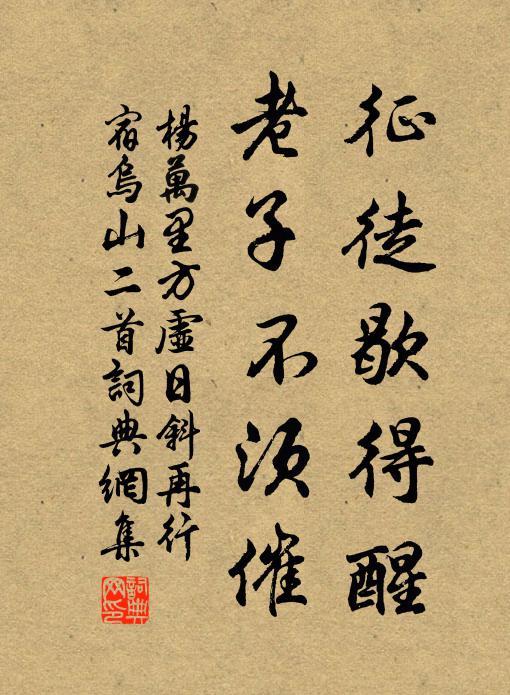 征徒歇得醒
老子不须催
楊萬里方虛日斜再行
宿烏山二首詞典網集
詞典网印